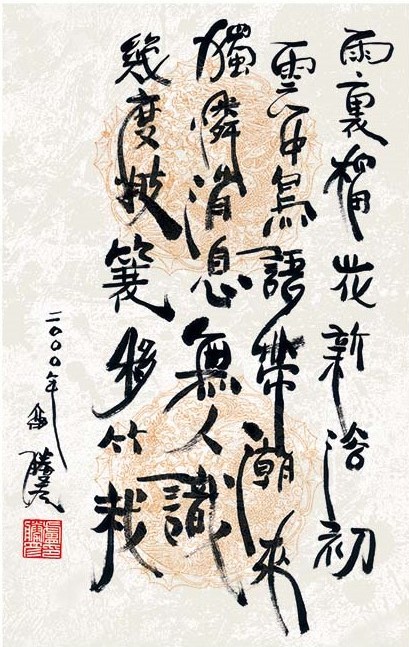 雨裏榴花新浴初
雲中鳥語帶潮來
獨憐消息無人識
幾度披蓑移竹栽
二〇〇〇年 盧勝彥